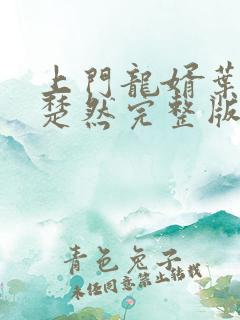 上門龍婿葉
楚然完整版
青色兔子
未经同意禁止转载